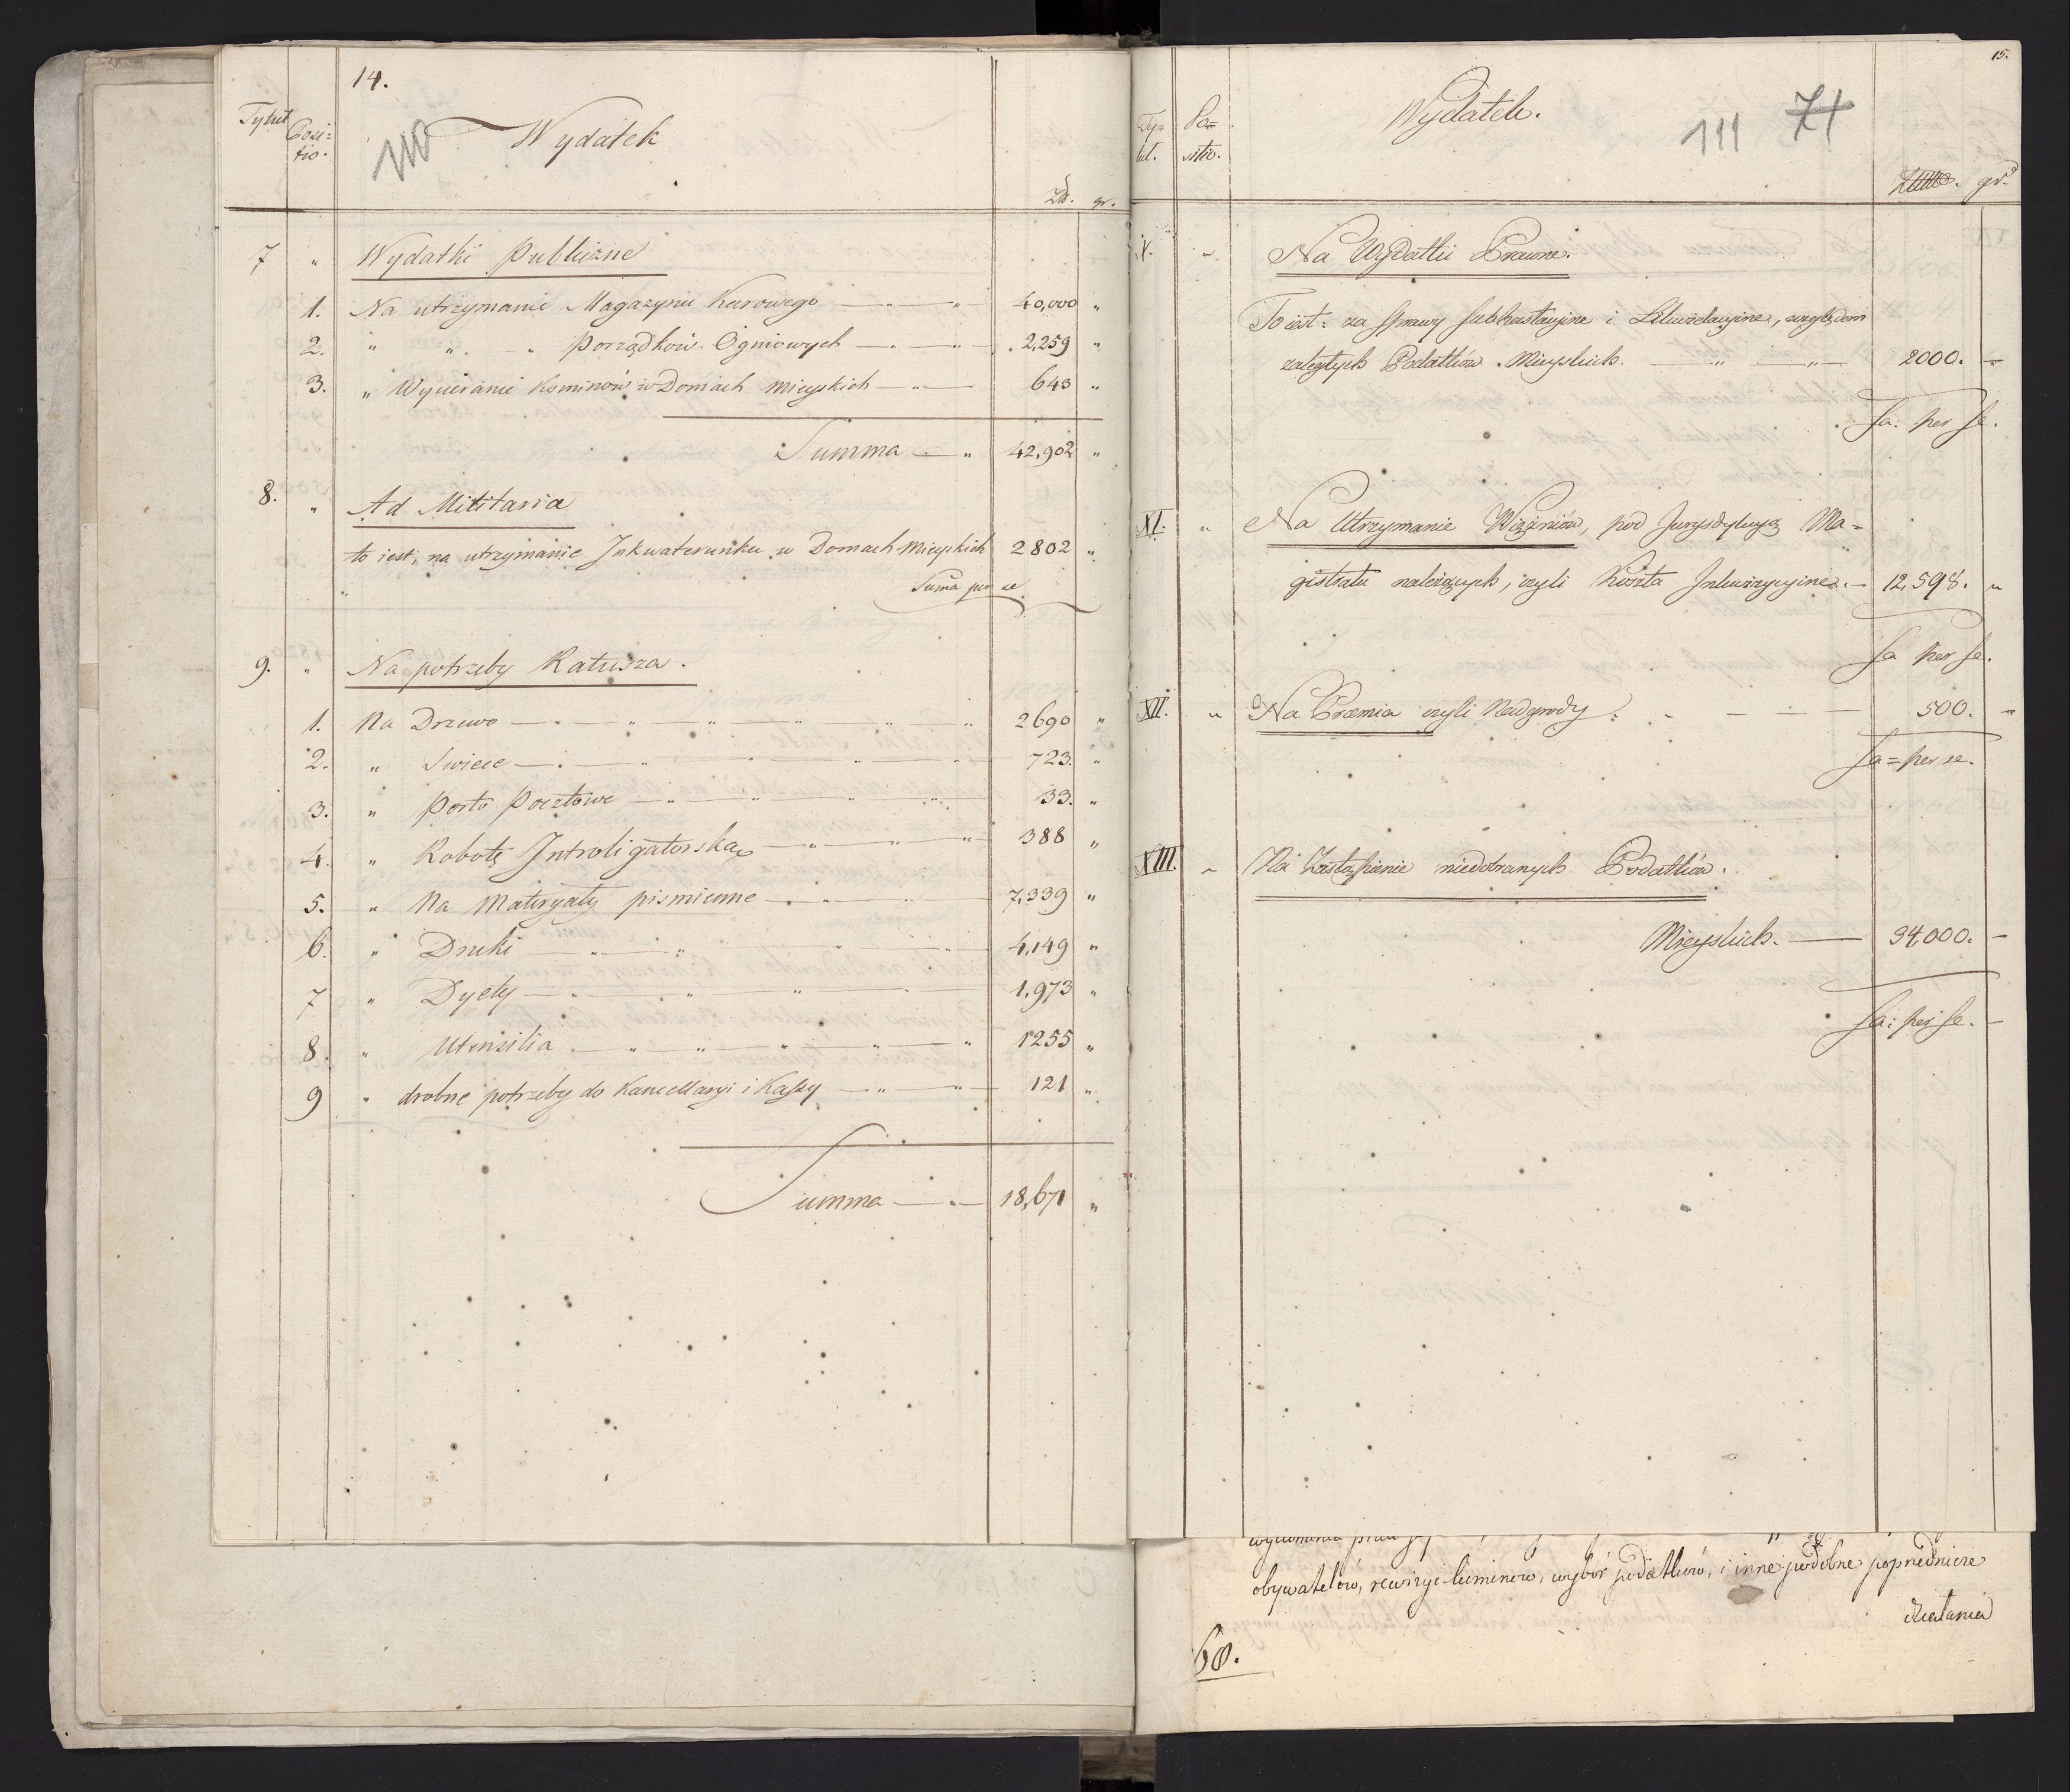 14.
Tytuł Posi=
tio.
110
Wydatek
Zł. gr.
7 „ Wydatki Publiczne
1. Na utrzymanie Magazynu Karowego — „ — „ — 40,000 „
2. „ „ „ Porządków Ogniowych — „ — 2,259 „
3. „ Wycieranie Kominów w Domach Mieyskich — „ — 643 „
Summa — „ 42,902 „
8. „ Ad Militaria
to iest, na utrzymanie Inkwaterunku w Domach Mieyskich 2802 „
Suma per se
9. „ Na potrzeby Ratusza.
1. Na Drzewo — „ — „ — „ — „ — „ — „ 2690 „
2. „ Swiece — „ — „ — „ — „ — 723. „
3. „ Porto Pocztowe — „ — „ — „ — „ 33. „
4. „ Robotę Introligatorską — „ — „ — „ 388 „
5. „ Na Materyały pismienne — „ — „ — 7,339 „
6. „ Druki — „ — „ — „ — „ 4,149 „
7 „ Dyety — „ — „ — „ — „ — 1,973 „
8. „ Utensilia — „ — „ — „ — „ — „ 1255 „
9 „ drobne potrzeby do Kancellaryi i Kassy — „ — „ — 121 „
Summa — „ — 18,671 „
15.
Ty=
tuł. Po=
sitio.
Wydatek.
111 71
gr.
X. „ Na Wydatki Prawne.
To iest: za Sprawy Subhastacyjne i Likwidacyjne, względem
zaległych Podatków Mieyskich. — „ — „ — 2000. —
Sa: per se.
XI. „ Na Utrzymanie Więźniów, pod Jurysdykcyą Ma=
gistratu należących, czyli Koszta Inkwizycyine. — 12,598. „
Sa per se.
XII. „ Na Præmia czyli Nadgrody. — — — 500. —
Sa= per se.
XIII. „ Na Zastąpienie niedobranych Podatków.
Mieyskich. — 94,000. —
Sa: per se. —
obywatelów, rewizye kominów, wybór podatków, i inne podobne poprzednicze
działania
60.